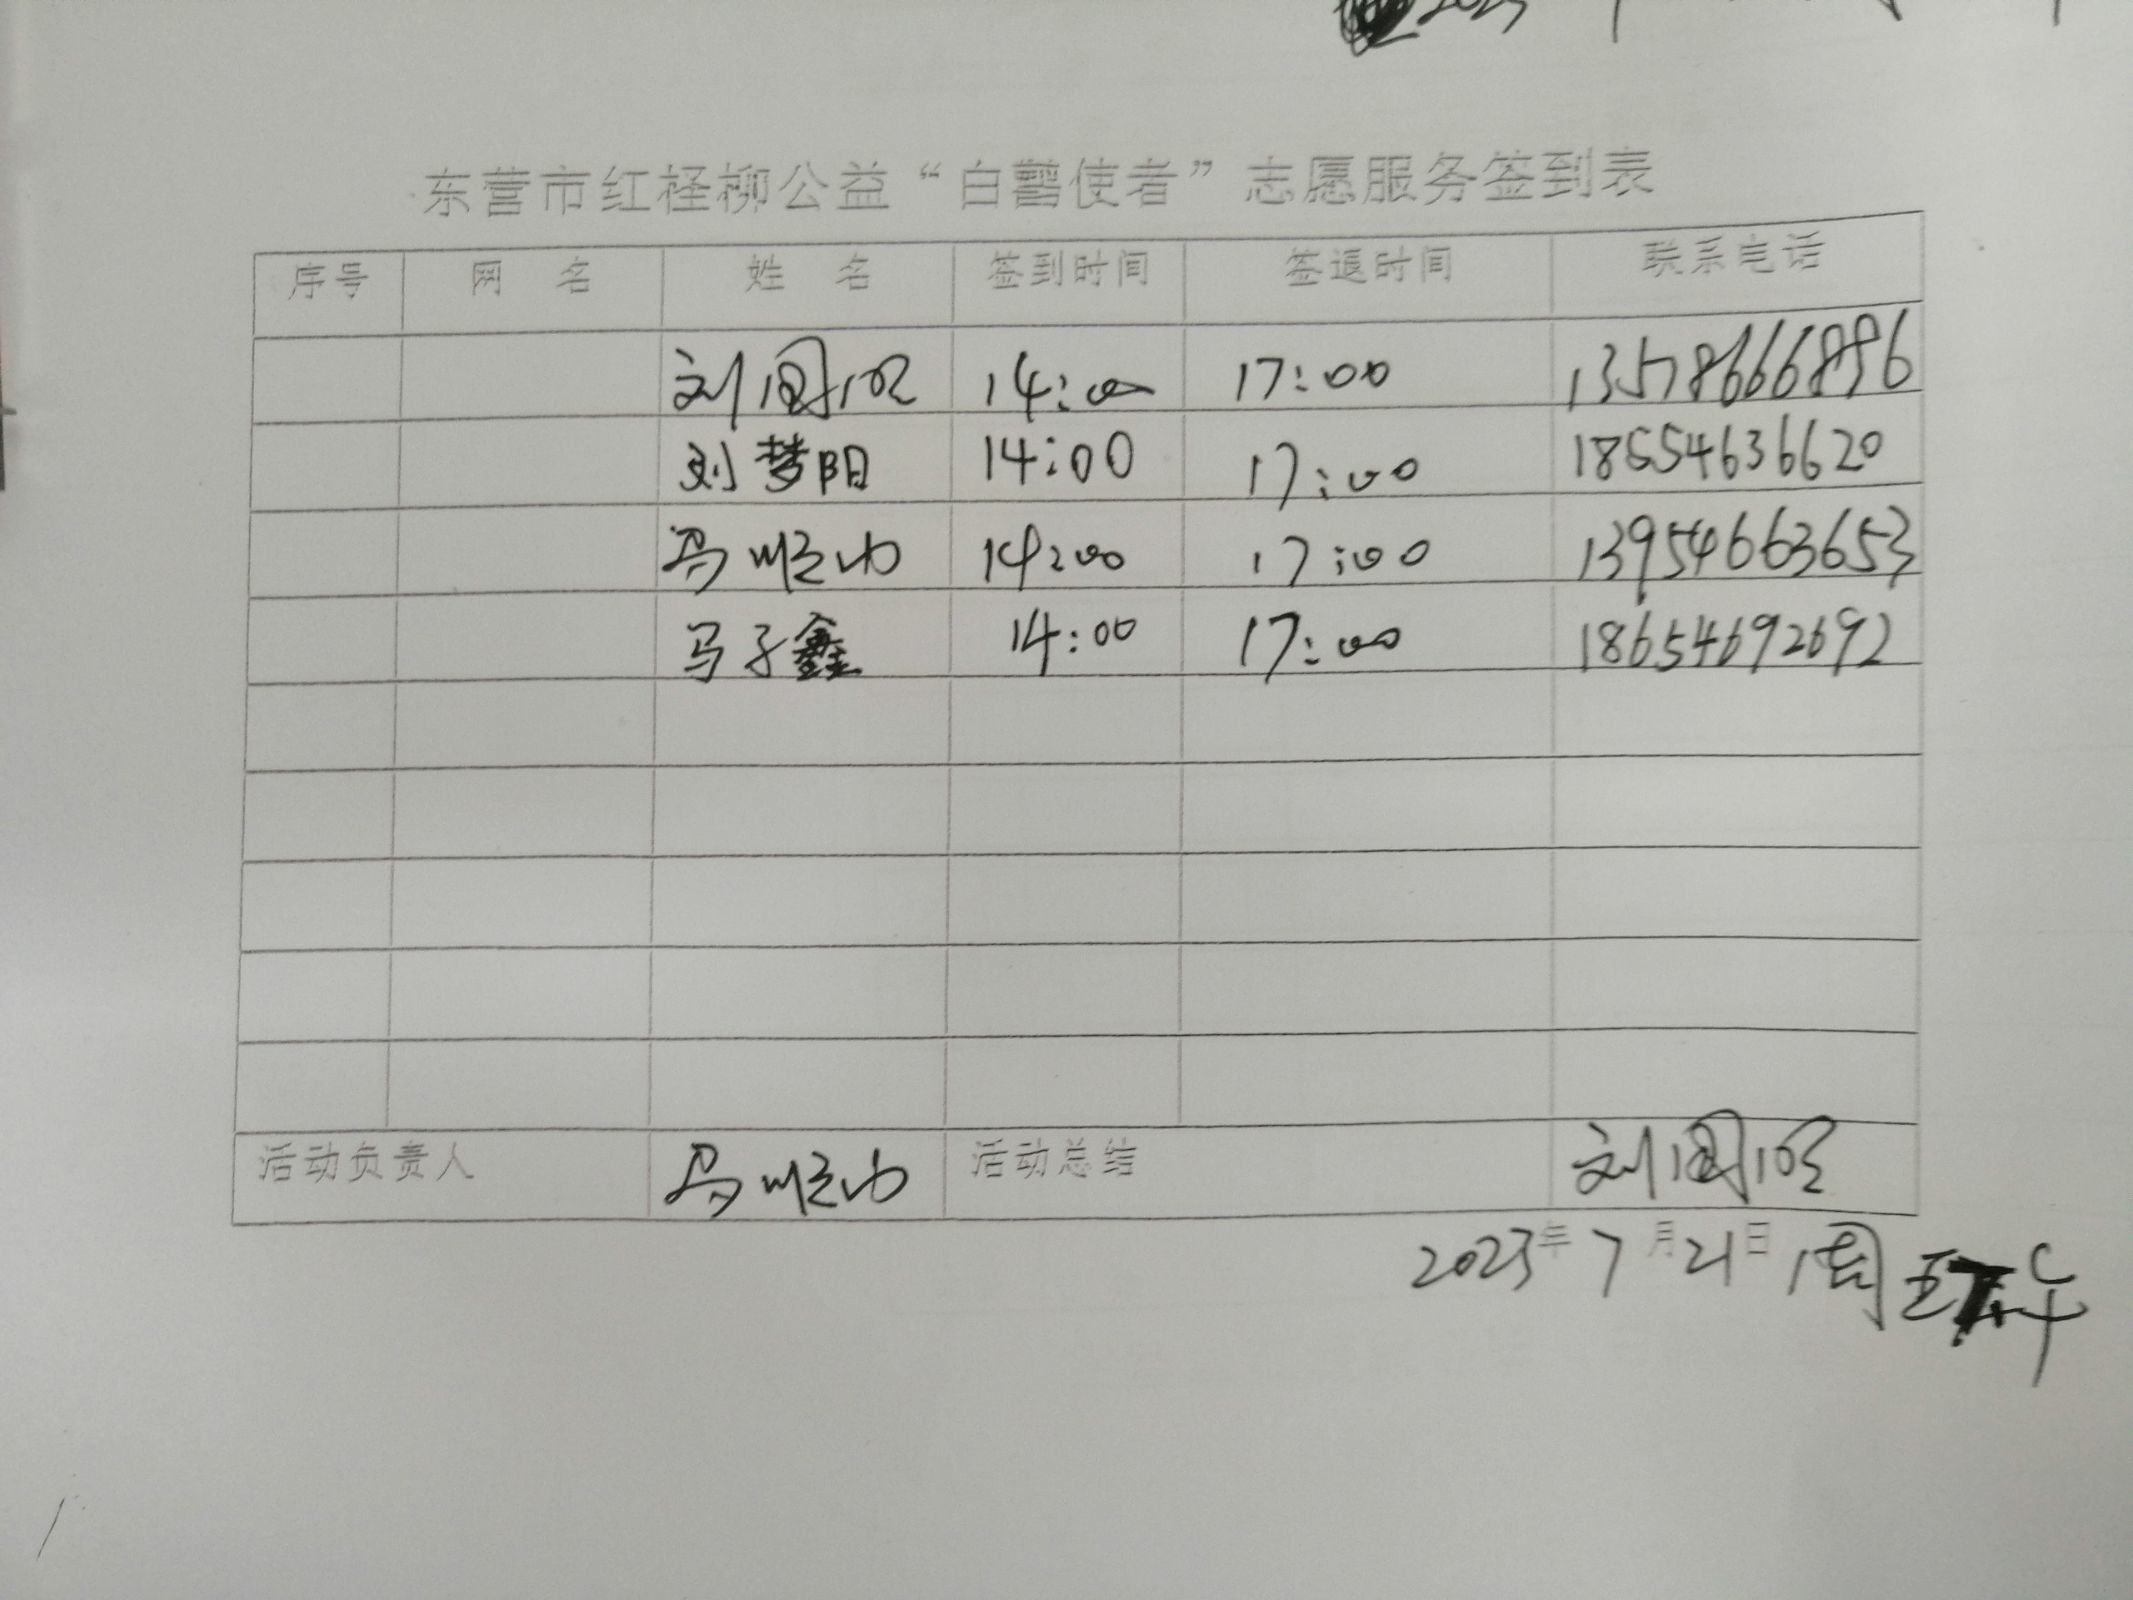 2023
东营市红柽柳公益“白鹭使者”志愿服务签到表
序号 网 名 姓 名 签到时间 签退时间 联系电话
刘国明 14:00 17:00 13578666896
刘梦阳 14:00 17:00 18554636620
马顺功 14:00 17:00 13954663653
马子鑫 14:00 17:00 18654692692
活动负责人 马顺功 活动总结 刘国明
2023年7月21日 周五下午